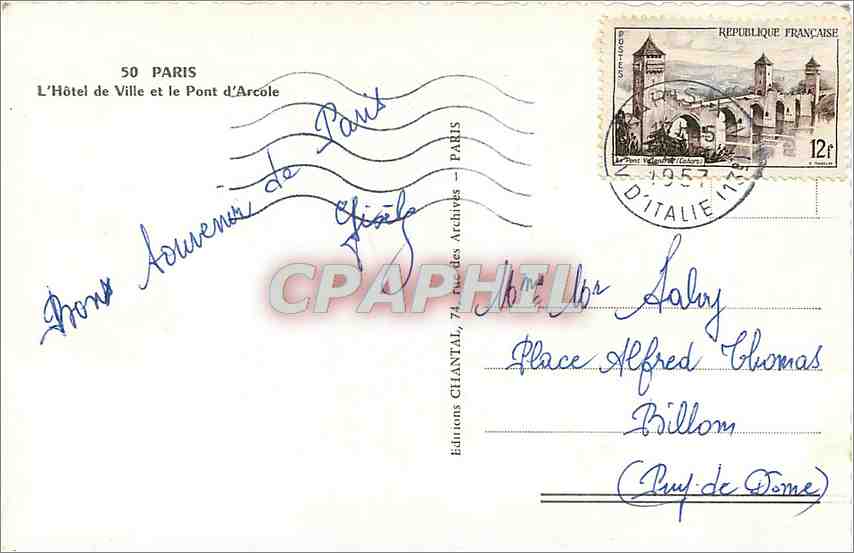 50 PARIS
L'Hôtel de Ville et le Pont d'Arcole
Bons souvenir de Paris
Gisèle
Editions CHANTAL, 74, rue des Archives — PARIS
REPUBLIQUE FRANÇAISE
POSTES
Le Pont Valentré (Cahors)
12f
1957
D'ITALIE (13e)
CPAPHIL
Mme Mr
Place Alfred Thomas
Billom
(Puy-de Dome)